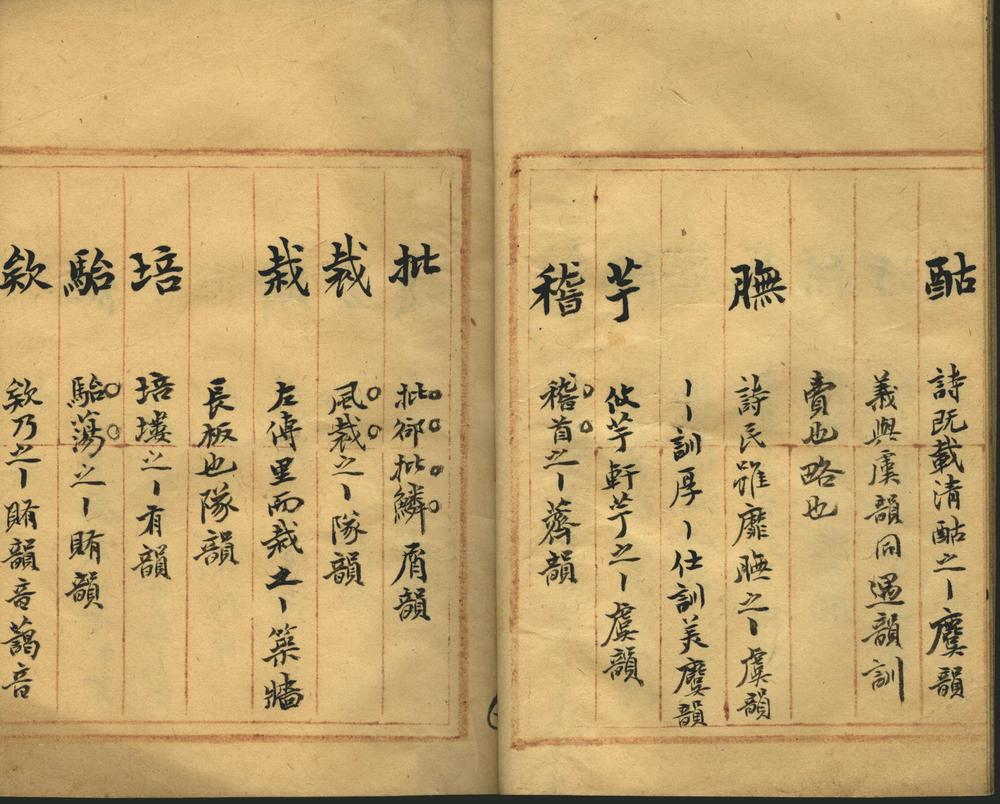 酤 詩既載清酤之丨麌韻
義與虞韻同遇韻訓
賣也略也
膴 詩民雖靡膴之丨虞韻
丨丨訓厚丨仕訓美麌韻
芋 攸芋軒芋之丨虞韻
稽 稽首之丨薺韻
批 批郤批鱗屑韻
裁 風裁之丨隊韻
栽 左傳里而栽土丨築牆
長板也隊韻
培 培塿之丨有韻
駘 駘蕩之丨賄韻
欸 欸乃之丨賄韻音藹音